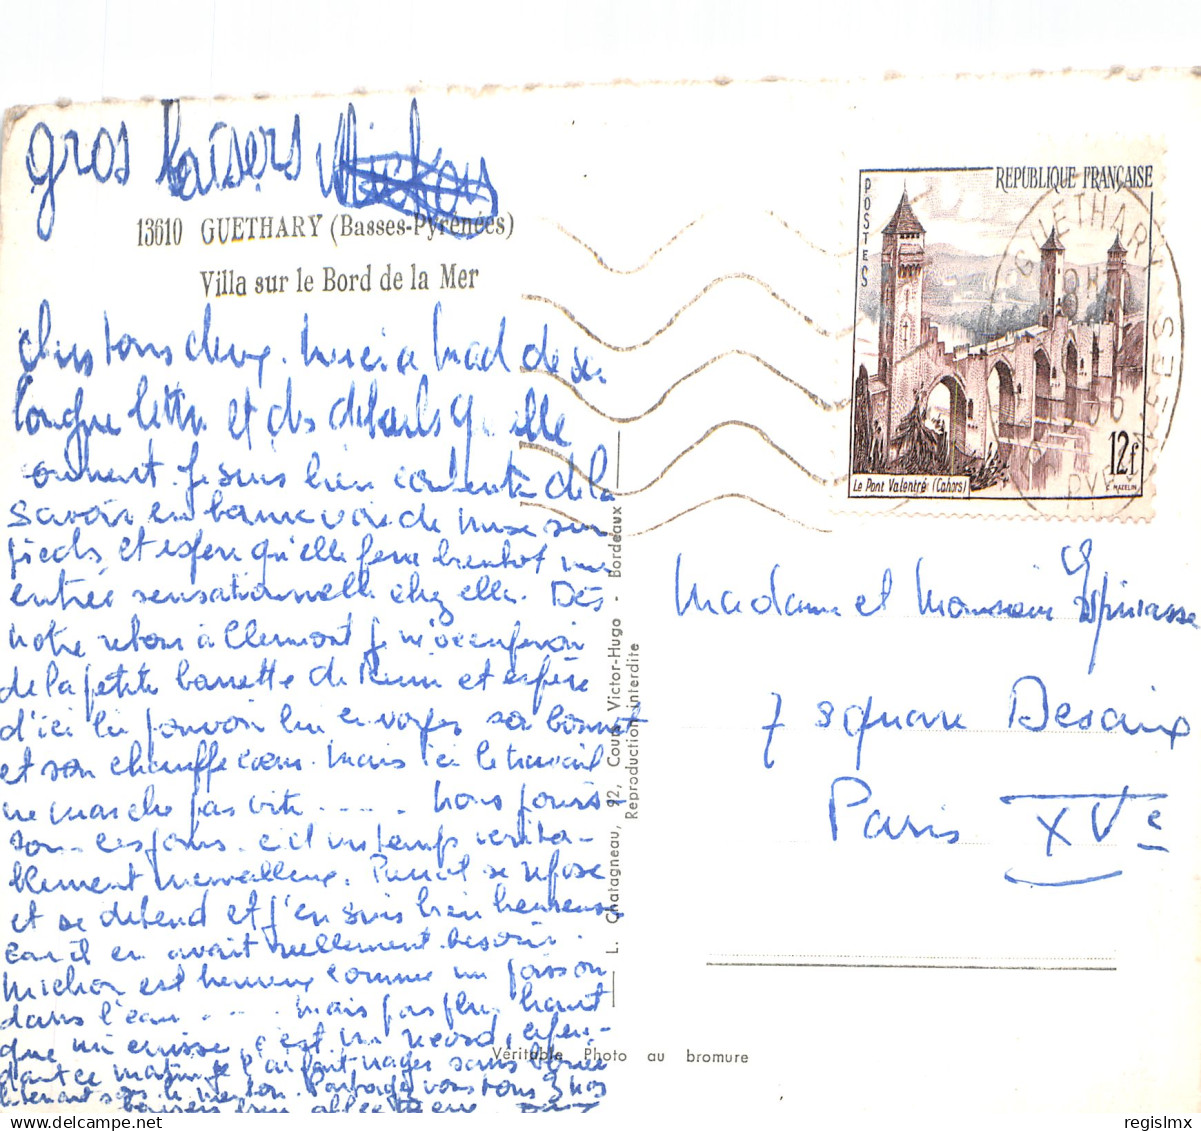 gros baisers Michou
13610 GUETHARY (Basses-Pyrénées)
Villa sur le Bord de la Mer
Chers tous deux. Merci a Mad de sa
longue lettre et des details qu'elle
donnent. Je suis bien contente de la
savoir en bonne voie de mise sur
pieds et espere qu'elle fera bientot une
entrée sensationnelle chez elle. Dès
notre retour à Clermont je m'occuperai
de la petite barrette de Remi et espère
d'ici là pouvoir lui envoyer son bonnet
et son chauffe coeur. Mais ici le travail
ne marche pas vite .... Nous jouis-
sons ces jours-ci d'un temps verita-
blement merveilleux. Pascal se repose
et se detend et j'en suis bien heureuse
car il en avait reellement besoin.
Michou est heureux comme un poisson
dans l'eau .... mais pas plus haut
que mi cuisse, c'est un record, cepen-
dant ce matin je l'ai fait nager sans bouée
le tenant sous le menton. Partagez vous tous 3 nos
baisers bien affectueux
L. Chatagneau, 92, Cours Victor-Hugo - Bordeaux
Reproduction interdite
Véritable Photo au bromure
POSTES
REPUBLIQUE FRANÇAISE
12f
Le Pont Valentré (Cahors)
C. MAZELIN
GUETHARY
Bses-PYRENEES
Madame et Monsieur Espinasse
7 square Desaix
Paris XVe
regislmx